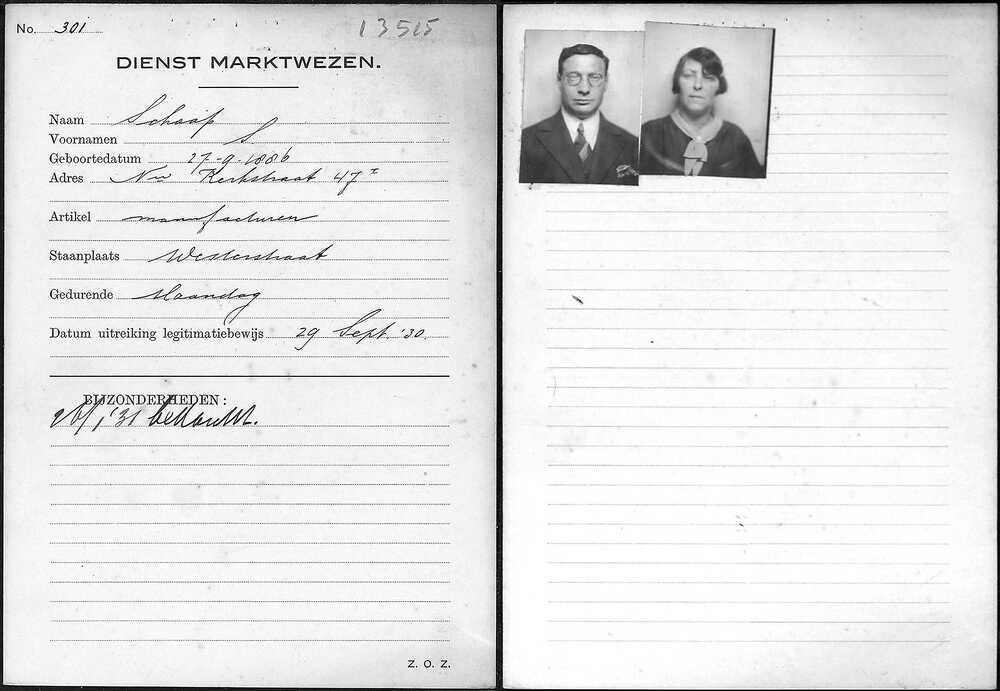 No. 301
13515
DIENST MARKTWEZEN.
Naam Schaap
Voornamen S
Geboortedatum 27-9-1886
Adres Nw Kerkstraat 47 I
Artikel manufacturen
Staanplaats Westerstraat
Gedurende Maandag
Datum uitreiking legitimatiebewijs 29 Sept. '30.
BIJZONDERHEDEN:
'31
Z. O. Z.